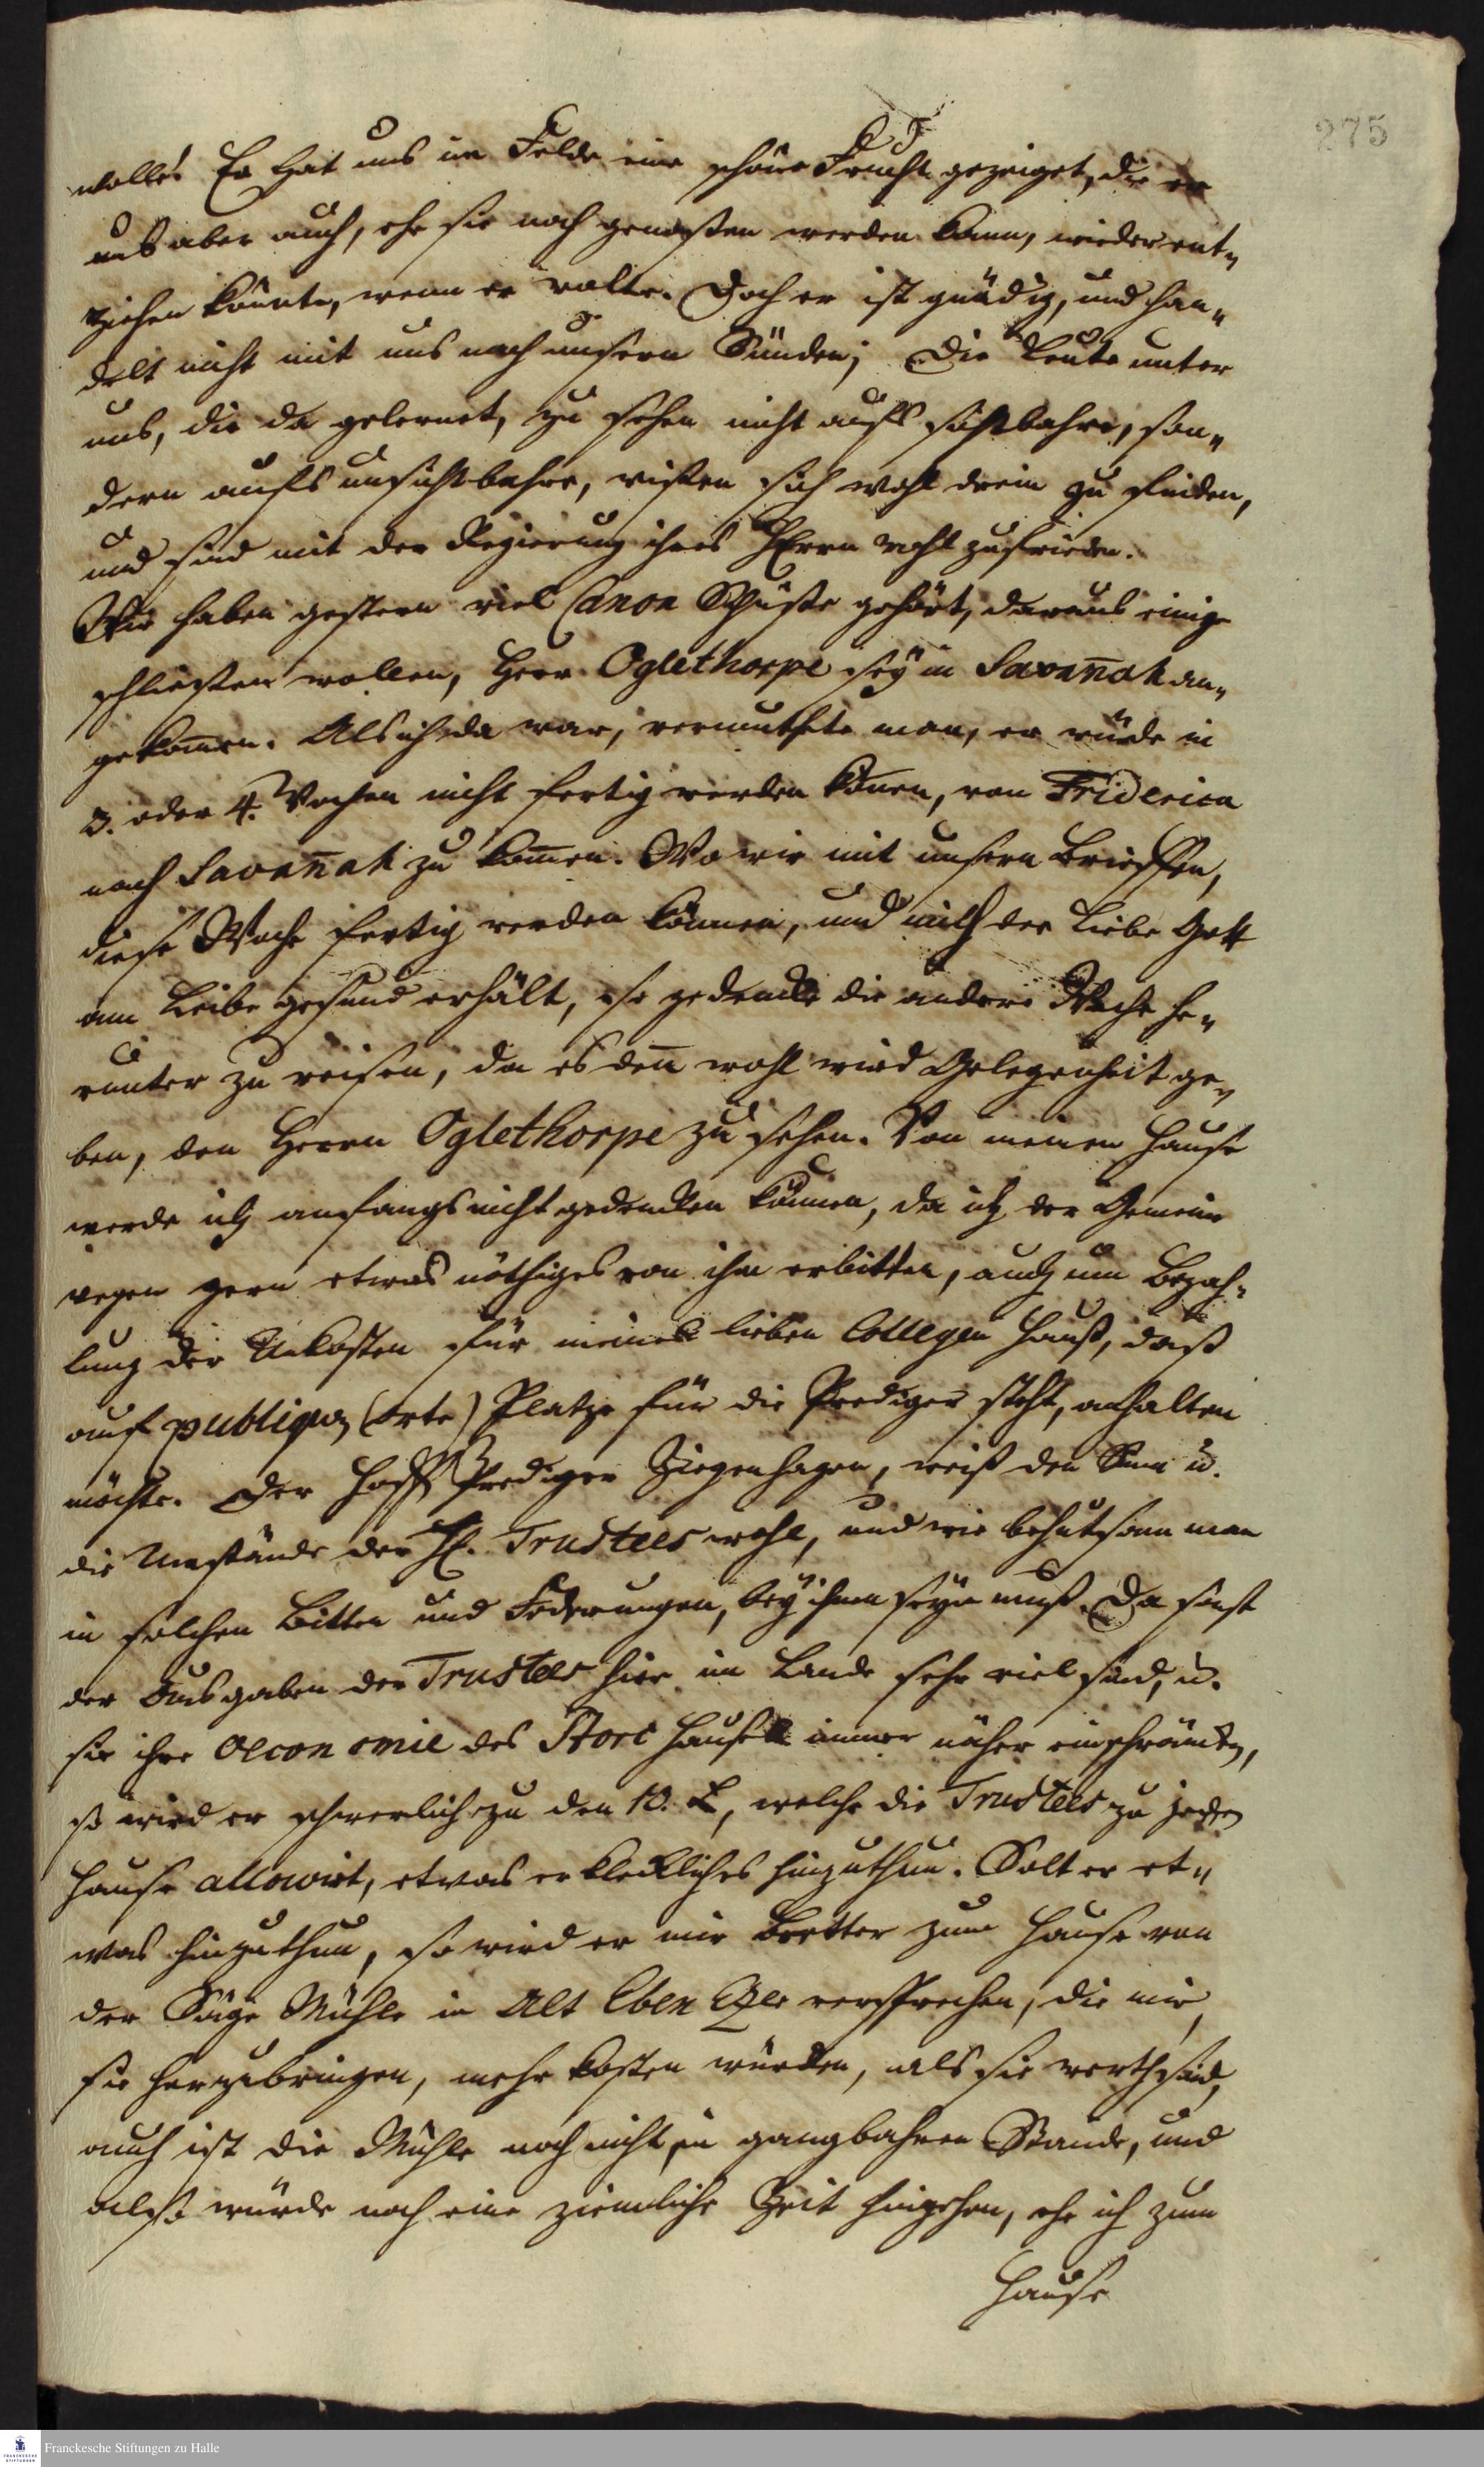 275
wolle. Er hat uns im Felde eine schöne Frucht gezeiget, die er
uns aber auch, ehe sie noch genossen werden kann, wieder ent-
ziehen könnte, wenn er wolte. Doch er ist gnädig, und han-
delt nicht mit uns nach unsern Sünden; Die Leute unter
uns, die da gelernet, zu sehen nicht aufs sichtbahre, son-
dern aufs unsichtbahre, wissen sich wohl drein zu finden,
und sind mit der Regierung ihres HErrn wohl zufrieden.
Wir haben gestern viel Canon Schüsse gehört, daraus einige
schliessen wollen, Herr Oglethorpe sey in Savan̄ah an-
gekom̄en. Als ich da war, vermuthete man, er würde in
3. oder 4. Wochen nicht fertig werden kön̄en, von Friderica
nach Savan̄ah zu kom̄en. Wo wir mit unsern Brieffen,
diese Woche fertig werden können, und mich der liebe Gott
am Leibe gesund erhält, so gedencke die andere Woche he-
runter zu reisen, da es den̄ wohl wird Gelegenheit ge-
ben, den Herrn Oglethorpe zu sehen. Von meinen Hause
werde ich anfangs nicht gedencken können, da ich der Gemeine
wegen gern etwas nöthiges von ihm erbitten, auch um Bezah-
lung der Unkosten für meines lieben Collegen Hauß, daß
auf publiquen (Orte) Platze für die Prediger steht, anhalten
möchte. Der Hoff Prediger Ziegenhagen, weiß den Sinn u.
die Umstände der H. Trustees wohl, und wie behutsam man
in solchen Bitten und Foderungen, bey ihnen seyn muß. Da sonst
der Ausgaben der Trustees hier im Lande sehr viel sind, u.
sie ihre Oeconomie des Store Hauses immer näher einschräncken,
so wird er schwerlich zu den 10. £, welche die Trustees zu jeden
Hause allowirt, etwas erkleckliches hinzuthun. Solt er et-
was hinzuthun, so wird er mir Bretter zum Hause von
der Säge Mühle in Alt Eben Ezer versprechen, die mir,
sie herzubringen, mehr kosten würden, als sie werth sind,
auch ist die Mühle noch nicht in gangbahren Stande, und
also würde noch eine ziemliche Zeit hingehen, ehe ich zum
Hause
Franckesche Stiftungen zu Halle